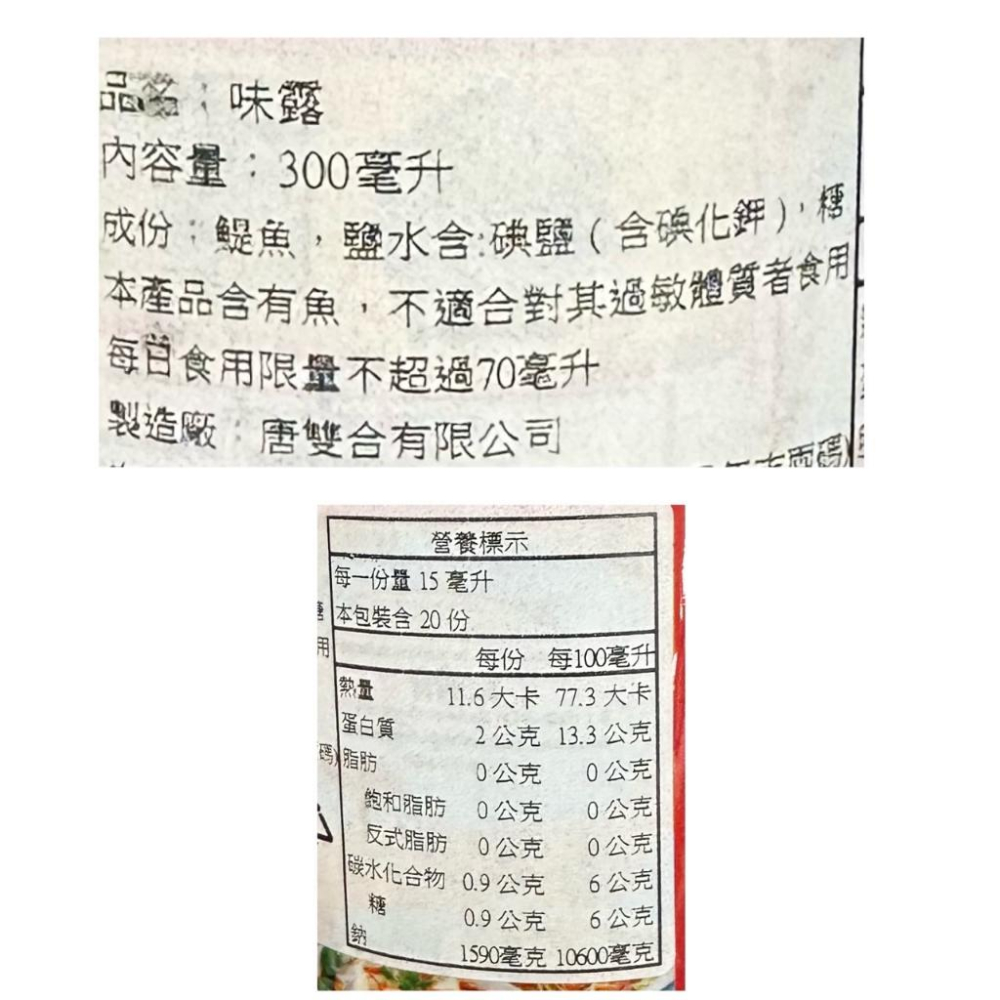 品名：味露
內容量：300毫升
成份：鯷魚，鹽水含:碘鹽（含碘化鉀），糖
本產品含有魚，不適合對其過敏體質者食用
每日食用限量不超過70毫升
製造廠：唐雙合有限公司
營養標示
每一份量 15 毫升
本包裝含 20 份
每份 每100毫升
熱量 11.6 大卡 77.3 大卡
蛋白質 2 公克 13.3 公克
脂肪 0 公克 0 公克
飽和脂肪 0 公克 0 公克
反式脂肪 0 公克 0 公克
碳水化合物 0.9 公克 6 公克
糖 0.9 公克 6 公克
鈉 1590毫克 10600毫克